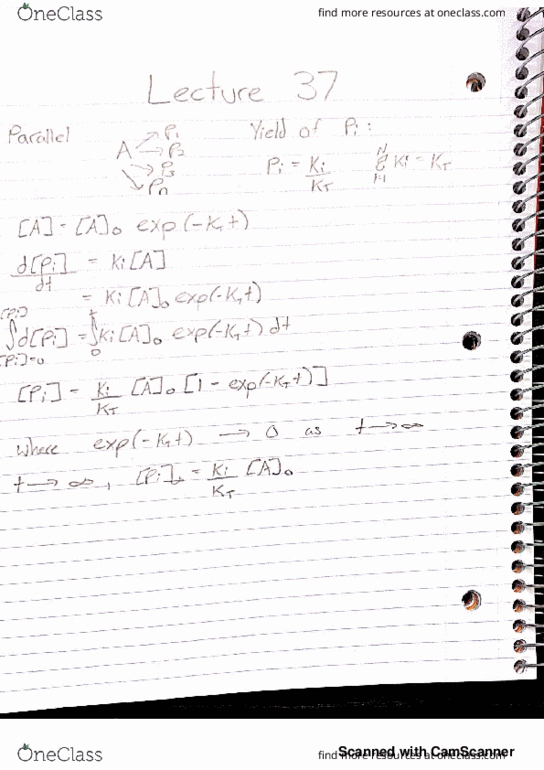 OneClass
find more resources at oneclass.com
Lecture 37
Parallel
A → P1
→ P2
→ P3
→ Pn
Yield of Pi:
Pi = Ki/KT
N Σ i=1 Ki = KT
[A] = [A]o exp(-KTt)
d[Pi]/dt = Ki[A]
= Ki[A]o exp(-KTt)
∫[Pi]=0^[Pi] d[Pi] = ∫0^t Ki[A]o exp(-KTt) dt
[Pi] = Ki/KT [A]o [1 - exp(-KTt)]
where exp(-KTt) → 0 as t → ∞
t → ∞, [Pi] = Ki/KT [A]o
OneClass
find more resources at oneclass.com
Scanned with CamScanner